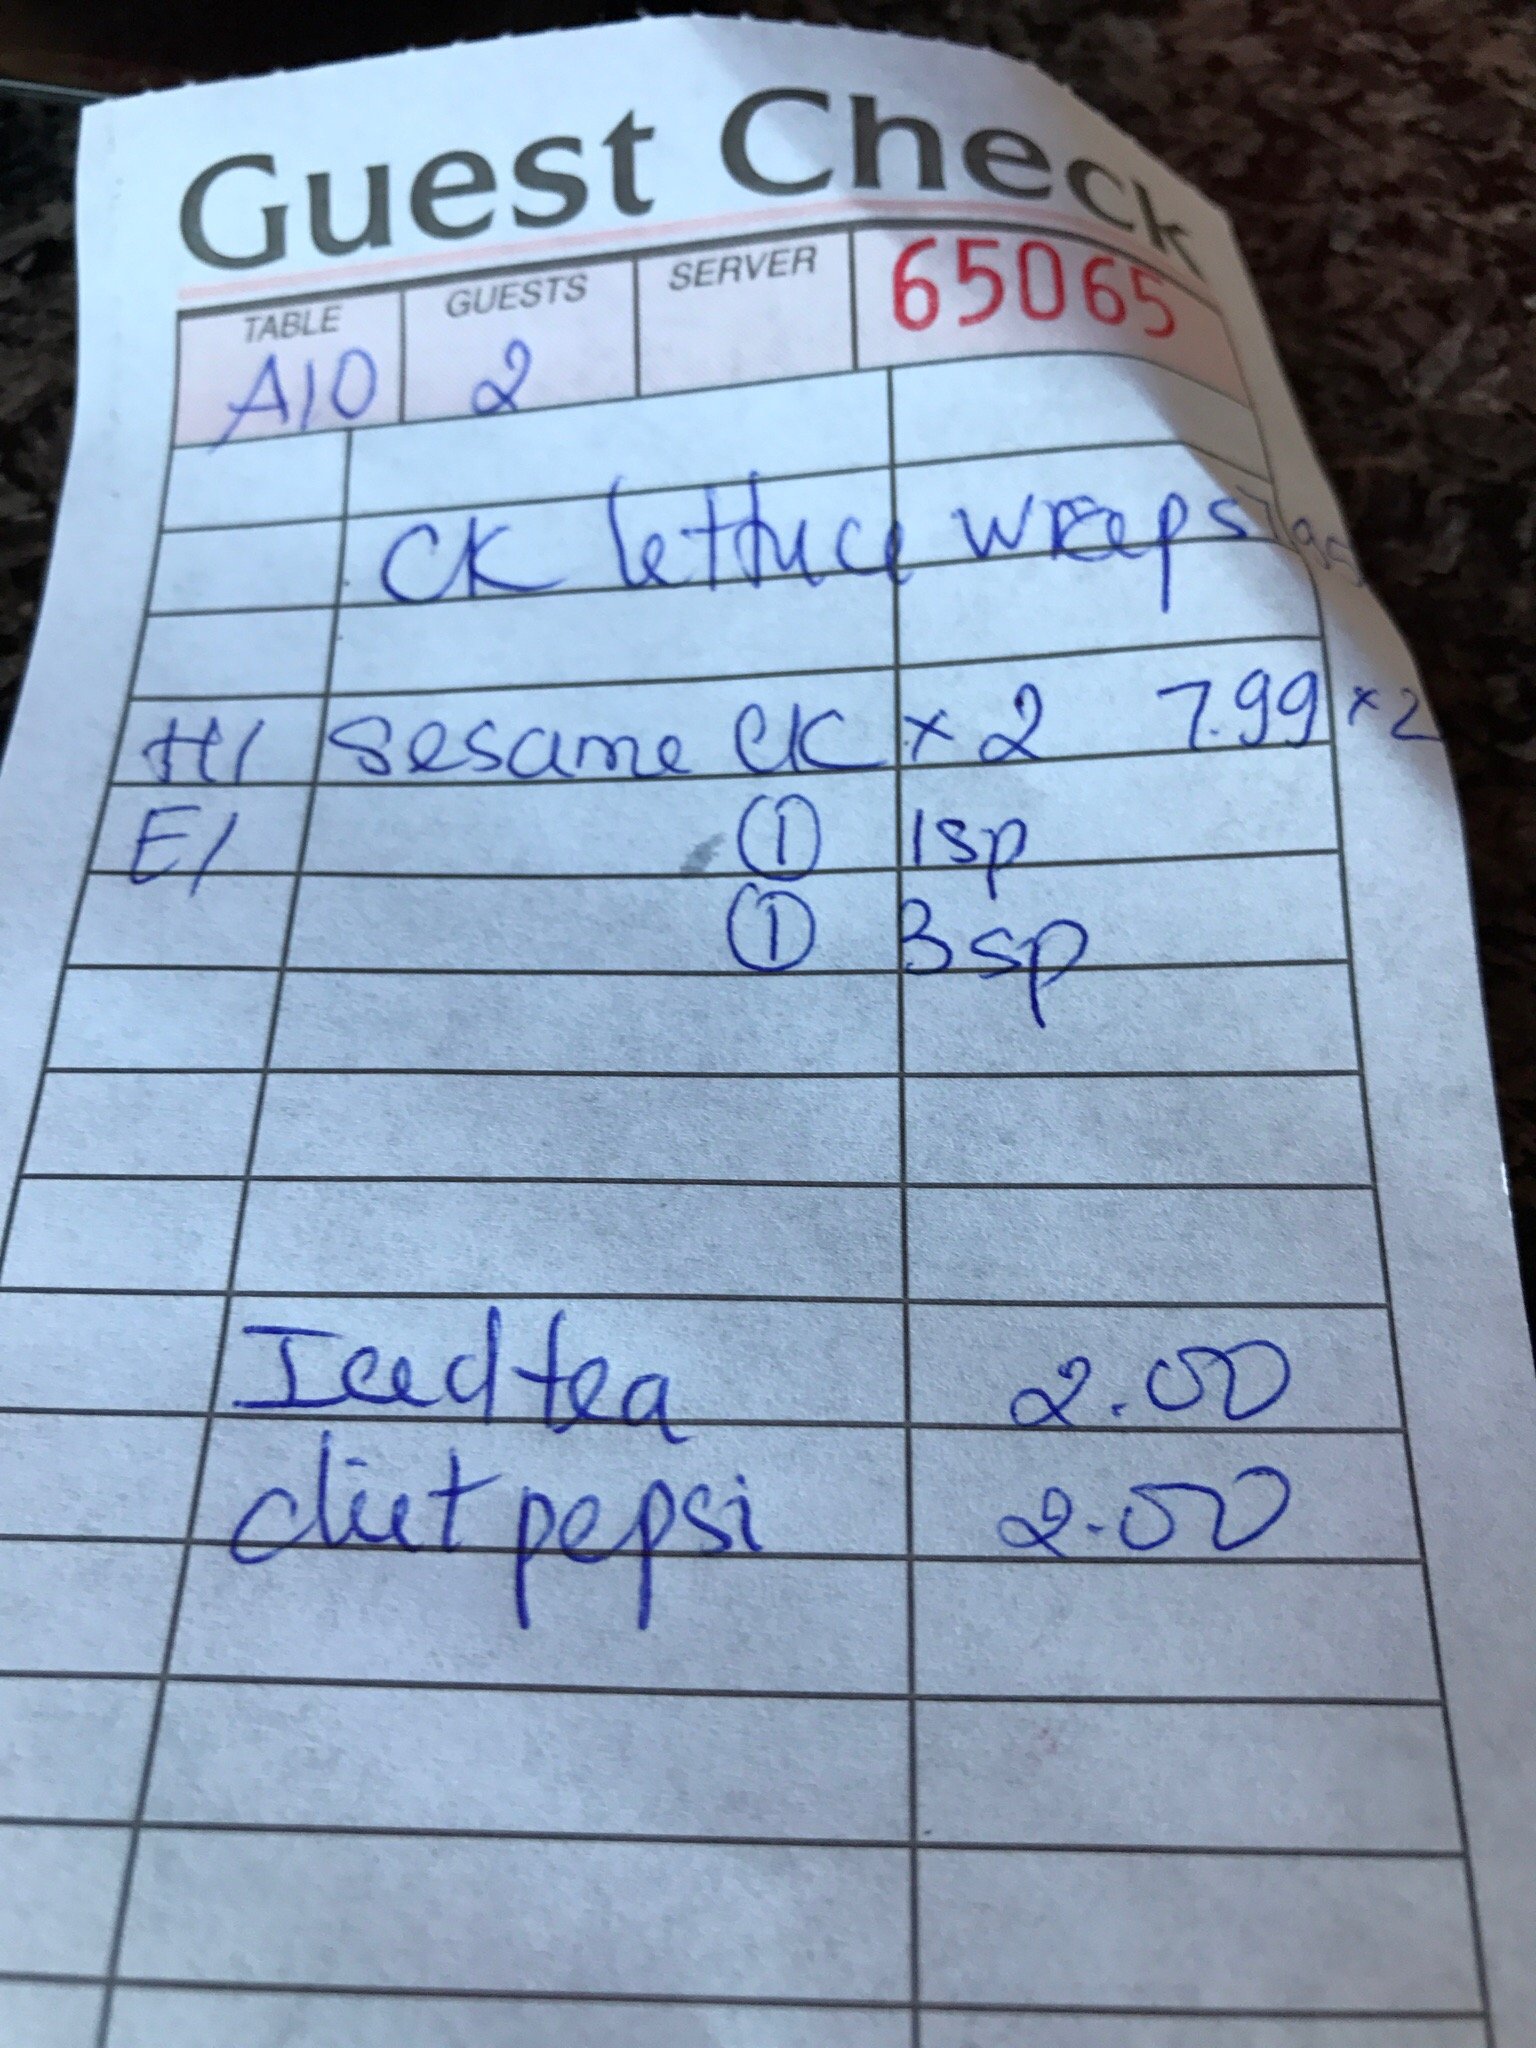 Guest Check
TABLE GUESTS SERVER 65065
A10 2
CK lettuce wraps 7.95
H1 Sesame CK x 2 7.99 x 2
E1 ① 1sp
① 3sp
Iced tea 2.00
diet pepsi 2.00